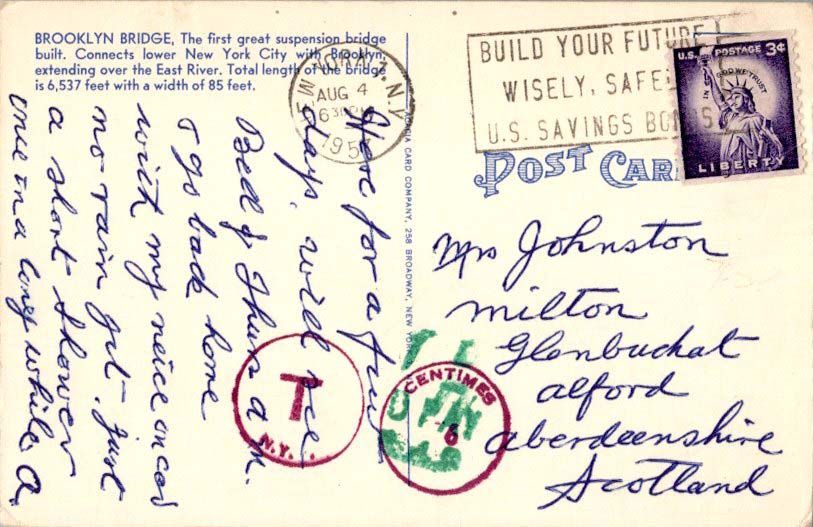 BROOKLYN BRIDGE, The first great suspension bridge
built. Connects lower New York City with Brooklyn,
extending over the East River. Total length of the bridge
is 6,537 feet with a width of 85 feet.
AUG 4
630PM
N.Y.
BUILD YOUR FUTURE
WISELY, SAFE
U.S. SAVINGS BONDS
U.S. POSTAGE 3¢
IN GOD WE TRUST
LIBERTY
POST CAR
CARD COMPANY, 258 BROADWAY, NEW YORK
Here for a few
days, will see
Bed & Thurs a.m.
& go back home
with my neice on cod
no rain yet. just
a short shower
once in a long while. A.
Mrs Johnston
Milton
Glenbuchat
alford
aberdeenshire
Scotland
T
N.Y.
CENTIMES
6